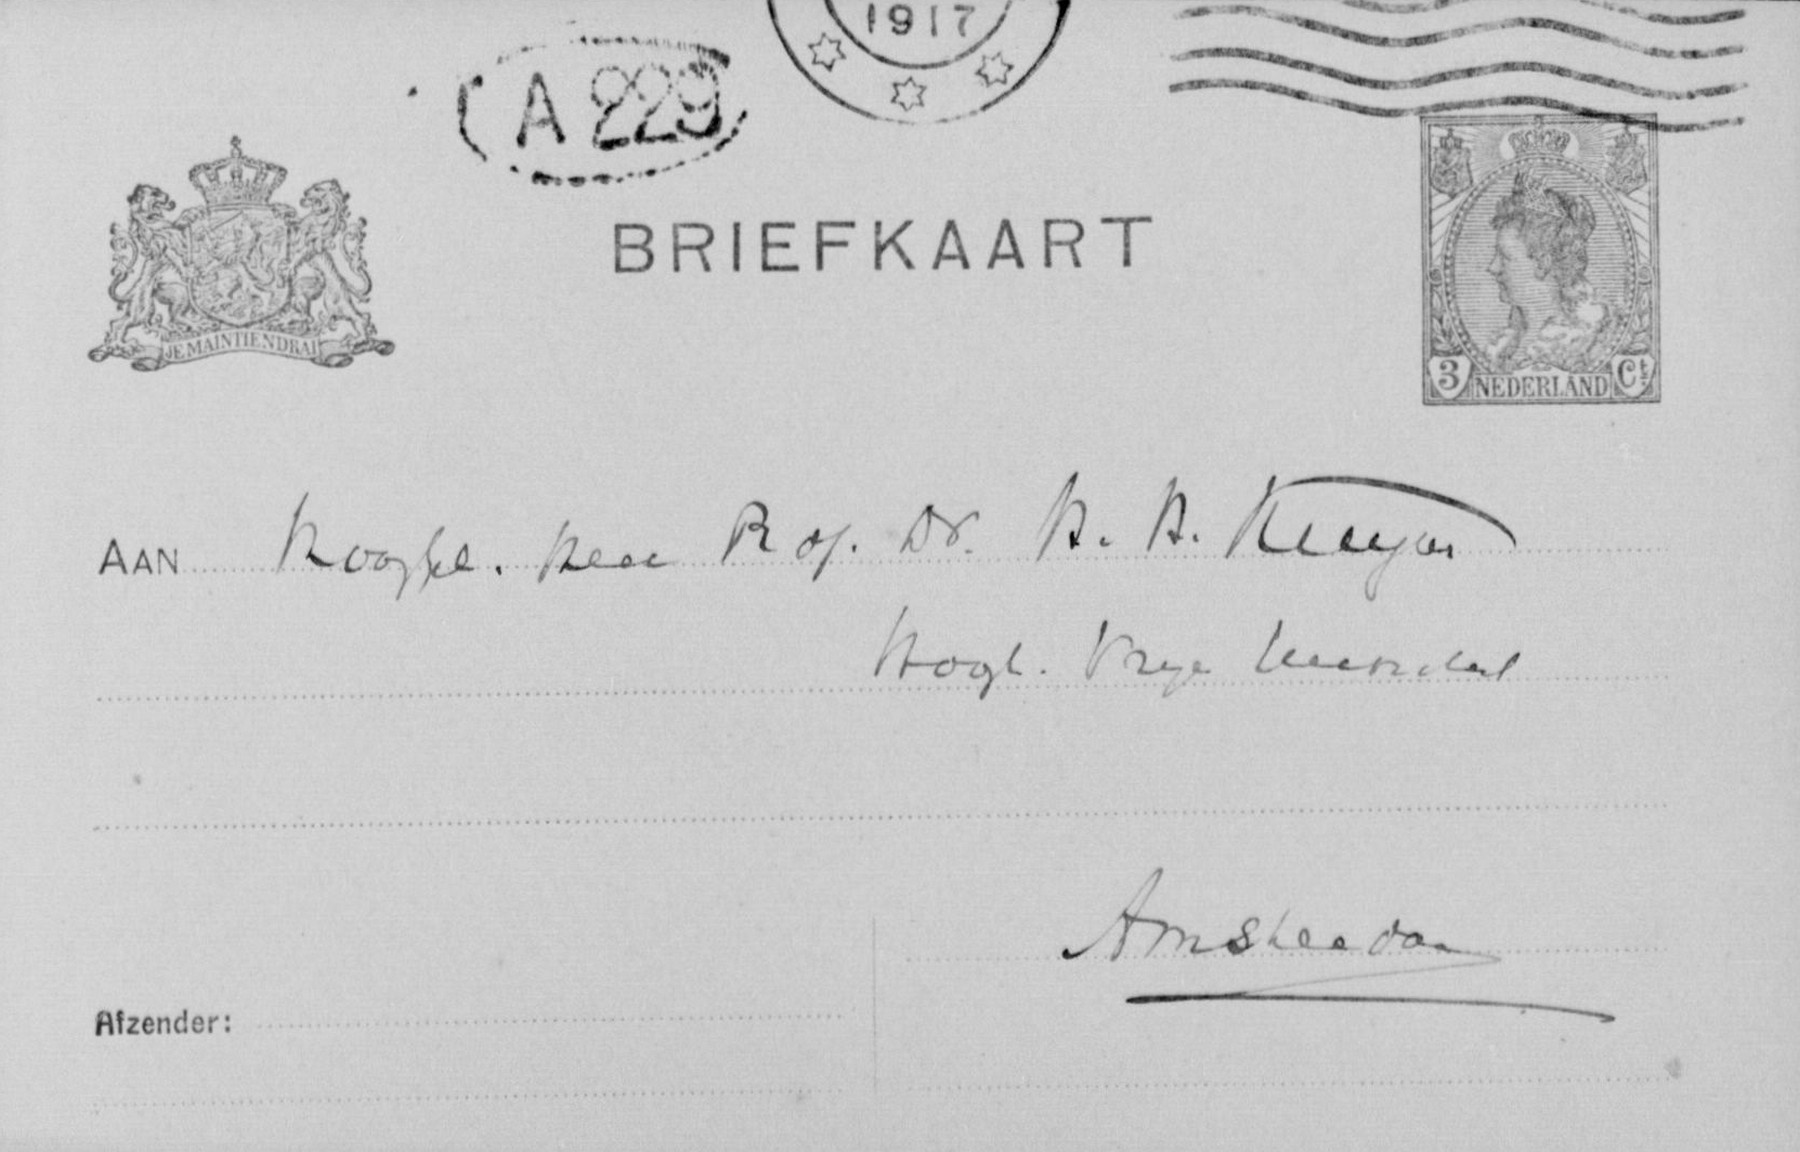 1917
A 229
JE MAINTIENDRAI
BRIEFKAART
3 NEDERLAND Ct
AAN Hooggel. Heer Prof. Dr. H. H. Kuyper
Hoogl. Vrije Universiteit
Amsterdam
Afzender: